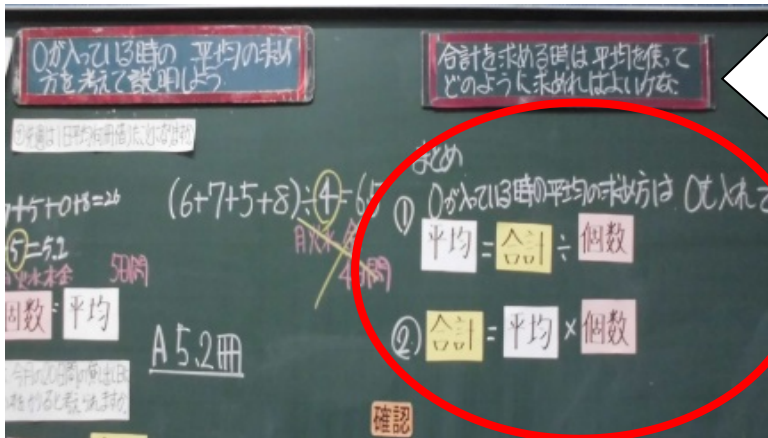 0が入っている時の 平均の求め
方を考えて説明しよう
合計を求める時は平均を使って
どのように求めればよいかな
7+5+0+8=26
5=5.2
5日間
個数=平均
(6+7+5+8)÷4=6.5
月火木金
4日間
A 5.2冊
まとめ
① 0が入っている時の平均の求め方は 0も入れて
平均=合計÷個数
② 合計=平均×個数
確認